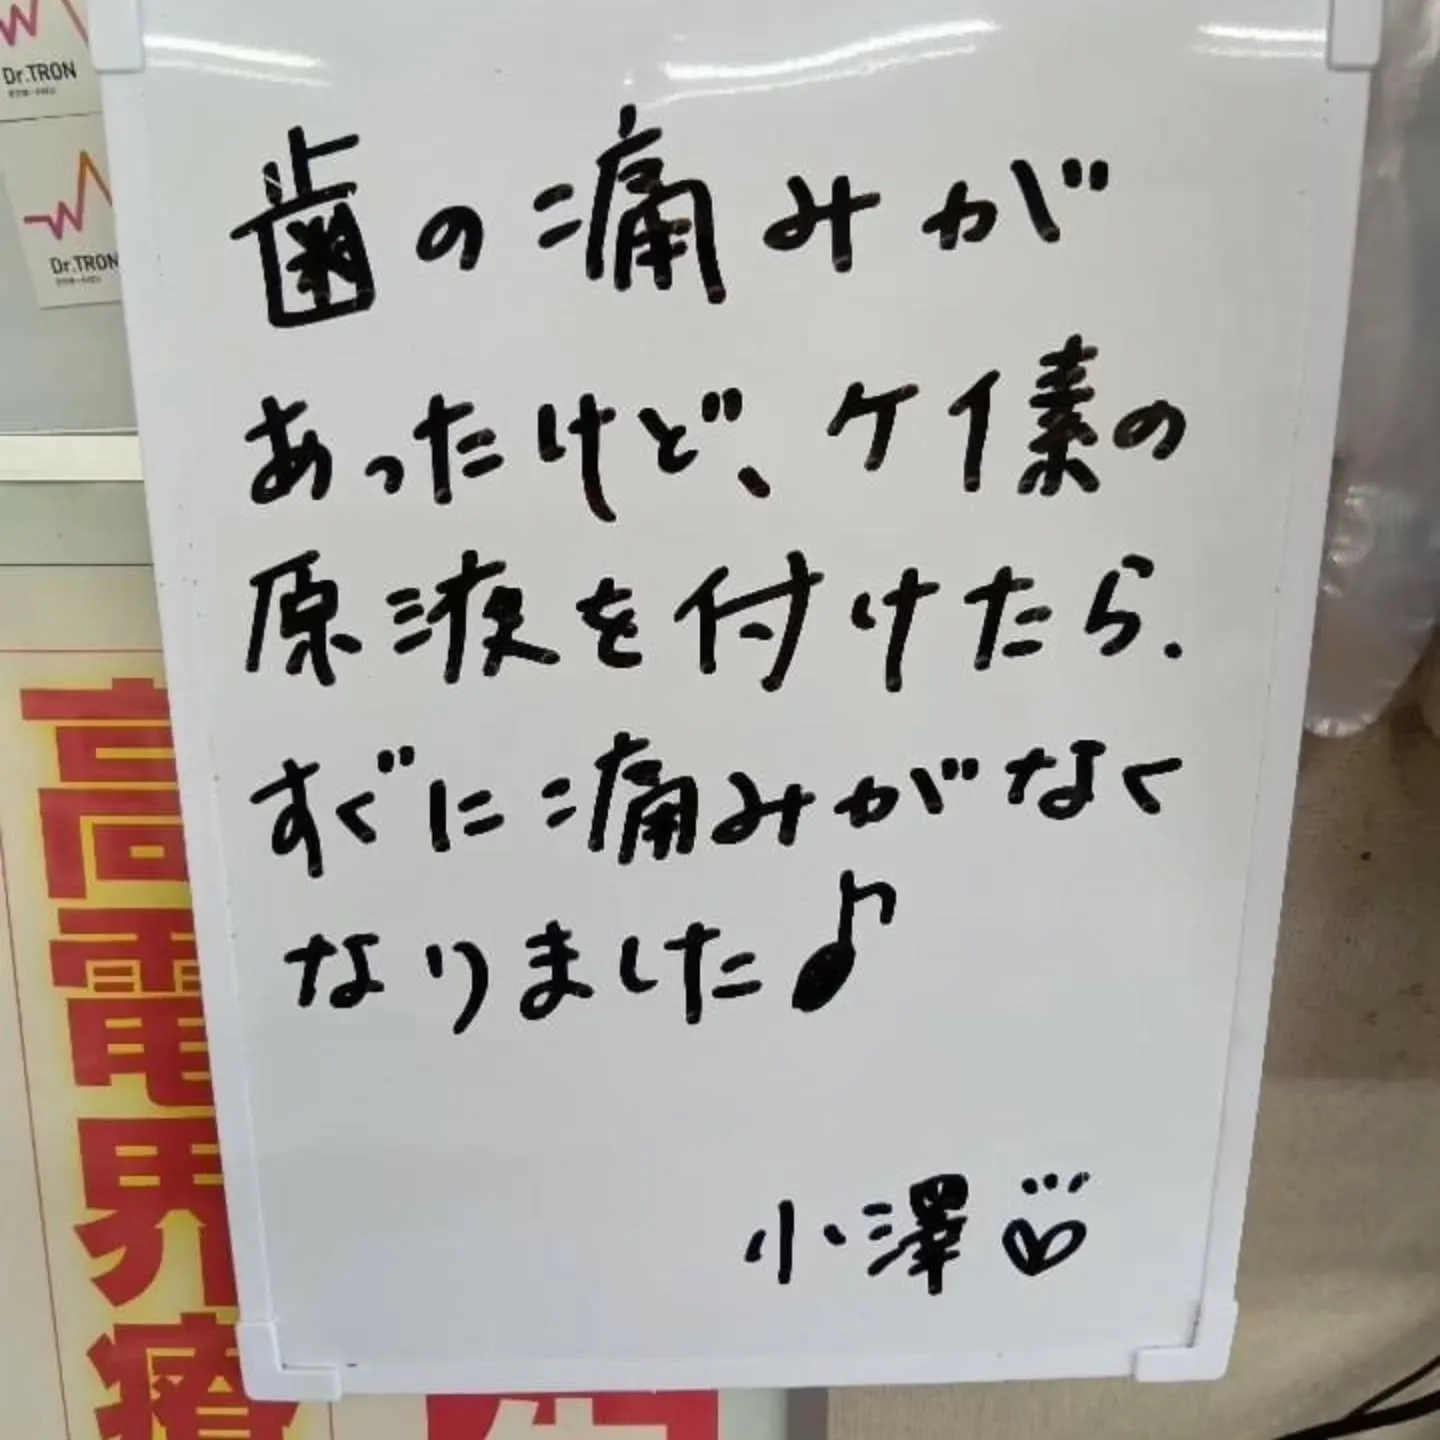 Dr.TRON
Dr.TRON
歯の痛みが
あったけど、ケイ素の
原液を付けたら.
すぐに痛みがなく
なりました♪
小澤♡
高電界療